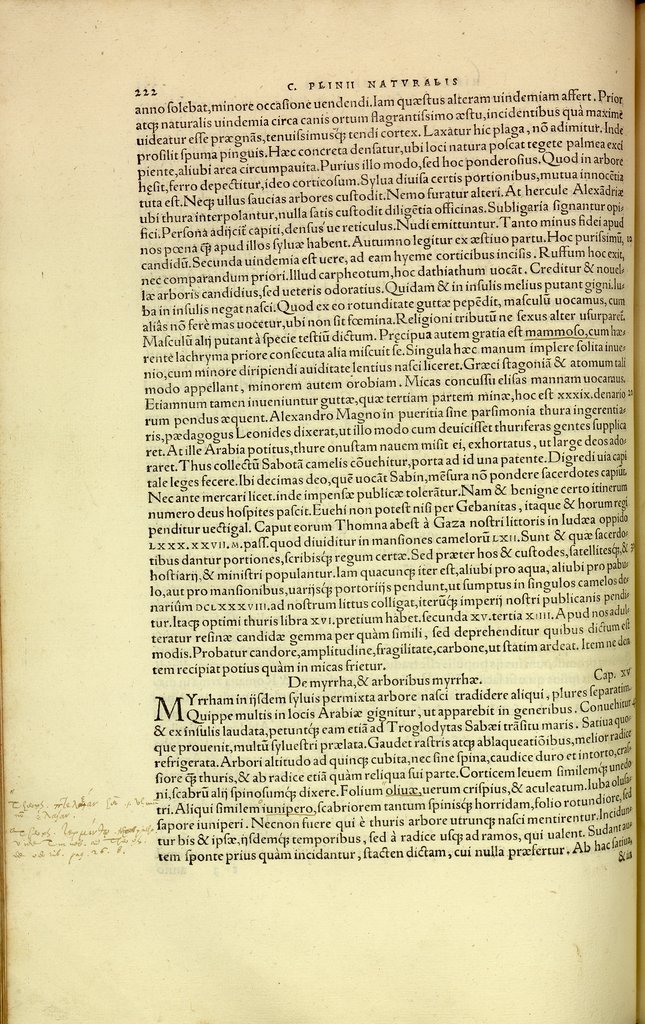 222
C. PLINII NATVRALIS
anno solebat,minore occasione uendendi.Iam quæstus alteram uindemiam affert. Prior
atq; naturalis uindemia circa canis ortum flagrantissimo æstu,incidentibus quà maximè
uideatur esse prægnãs,tenuissimusq́; tendi cortex. Laxatur hic plaga, nõ adimitur. Inde
prosilit spuma pinguis.Hæc concreta densatur,ubi loci natura poscat tegete palmea exci
piente,aliubi area circumpauita.Purius illo modo,sed hoc ponderosius.Quod in arbore
hęsit,ferro depectitur,ideo corticosum.Sylua diuisa certis portionibus,mutua innocẽtia
tuta est.Necq; ullus saucias arbores custodit.Nemo furatur alteri.At hercule Alexãdriæ
ubi thura interpolantur,nulla satis custodit diligẽtia officinas.Subligaria signantur opi-
fici.Persona adijcit̃ capiti, densus'ue reticulus.Nudi emittuntur.Tanto minus fidei apud
nos pœna q̃; apud illos syluæ habent. Autumno legitur ex æstiuo partu.Hoc purissimũ,
candidũ.Secunda uindemia est uere, ad eam hyeme corticibus incisis. Ruffum hoc exit,
nec comparandum priori.Illud carpheotum,hoc dathiathum uocãt. Creditur & nouel-
læ arboris candidius,sed ueteris odoratius.Quidam & in insulis melius putant gigni.Iu-
ba in insulis negat nasci.Quod ex eo rotunditate guttæ pepẽdit, masculũ uocamus, cum
aliàs nõ ferè mas uocetur,ubi non sit fœmina.Religioni tributũ ne sexus alter usurparet̃.
Masculũ alij putant à specie testiũ dictum. Pręcipua autem gratia est mammoso,cum hæ-
rente lachryma priore consecuta alia miscuit se.Singula hæc manum implere solita inue-
nio,cum minore diripiendi auiditate lentius nasci liceret.Græci stagoniã & atomum tali
modo appellant, minorem autem orobiam. Micas concussu elisas mannam uocamus.
Etiamnum tamen inueniuntur guttæ,quæ tertiam partem minæ,hoc est xxxix.denario
rum pendus æquent.Alexandro Magno in pueritia sine parsimonia thura ingerenti a-
ris,pædagogus Leonides dixerat,ut illo modo cum deuicisset thuriferas gentes supplica
ret. At ille Arabia potitus,thure onustam nauem misit ei, exhortatus, ut large deos ado-
raret.Thus collectũ Sabotã camelis cõuehitur,porta ad id una patente. Digredi uia capi
tale leges fecere.Ibi decimas deo,quẽ uocãt Sabin,mẽsura nõ pondere sacerdotes capiũt.
Nec ante mercari licet.inde impensæ publicæ tolerãtur.Nam & benigne certo itinerum
numero deus hospites pascit.Euehi non potest nisi per Gebanitas, itaque & horum regi
penditur uectigal. Caput eorum Thomna abest à Gaza nostri littoris in Iudæa oppido
LXXX.XXVII.M.pass.quod diuiditur in mansiones camelorũ LXII.Sunt & quæ sacerdo-
tibus dantur portiones,scribisq́; regum certæ.Sed præter hos & custodes,satellitesq́;,&
hostiarij,& ministri populantur.Iam quacunq; iter est,aliubi pro aqua, aliubi pro pabu-
lo,aut pro mansionibus,uarijsq́; portorijs pendunt,ut sumptus in singulos camelos de-
narium DCLXXXVIII.ad nostrum littus colligat,iterũq́; imperij nostri publicanis pendi-
tur.Itaq; optimi thuris libra XVI.pretium habet.secunda XV.tertia XIIII. Apud nos adul-
teratur resinæ candidæ gemma per quàm simili, sed deprehenditur quibus dictum est
modis.Probatur candore,amplitudine,fragilitate,carbone,ut statim ardeat. Item ne den
tem recipiat potius quàm in micas frietur.
De myrrha,& arboribus myrrhæ. Cap. XV
MYrrham in ijsdem syluis permixta arbore nasci tradidere aliqui, plures separatim.
Quippe multis in locis Arabiæ gignitur, ut apparebit in generibus. Conuehitur
& ex insulis laudata,petuntq́; eam etiã ad Troglodytas Sabæi trãsitu maris. Satiua quo-
que prouenit,multũ syluestri prælata.Gaudet rastris atq; ablaqueatiõibus,melior radice
refrigerata. Arbori altitudo ad quinq; cubita,nec sine spina,caudice duro et intorto,cras-
siore q̃; thuris,& ab radice etiã quàm reliqua sui parte. Corticem leuem similemq́; unedo
ni,scabrũ alij spinosumq́; dixere. Folium oliuæ,uerum crispius,& aculeatum.Iuba olusa-
tri. Aliqui similem iunipero,scabriorem tantum spinisq́; horridam,folio rotundiore,sed
sapore iuniperi. Necnon fuere qui è thuris arbore utrunq; nasci mentirentur. Incidun-
tur bis & ipsæ,ijsdemq́; temporibus, sed à radice usq; ad ramos, qui ualent. Sudant aut̃
tem sponte prius quàm incidantur, stacten dictam, cui nulla præfertur. Ab hac satiua,
& in